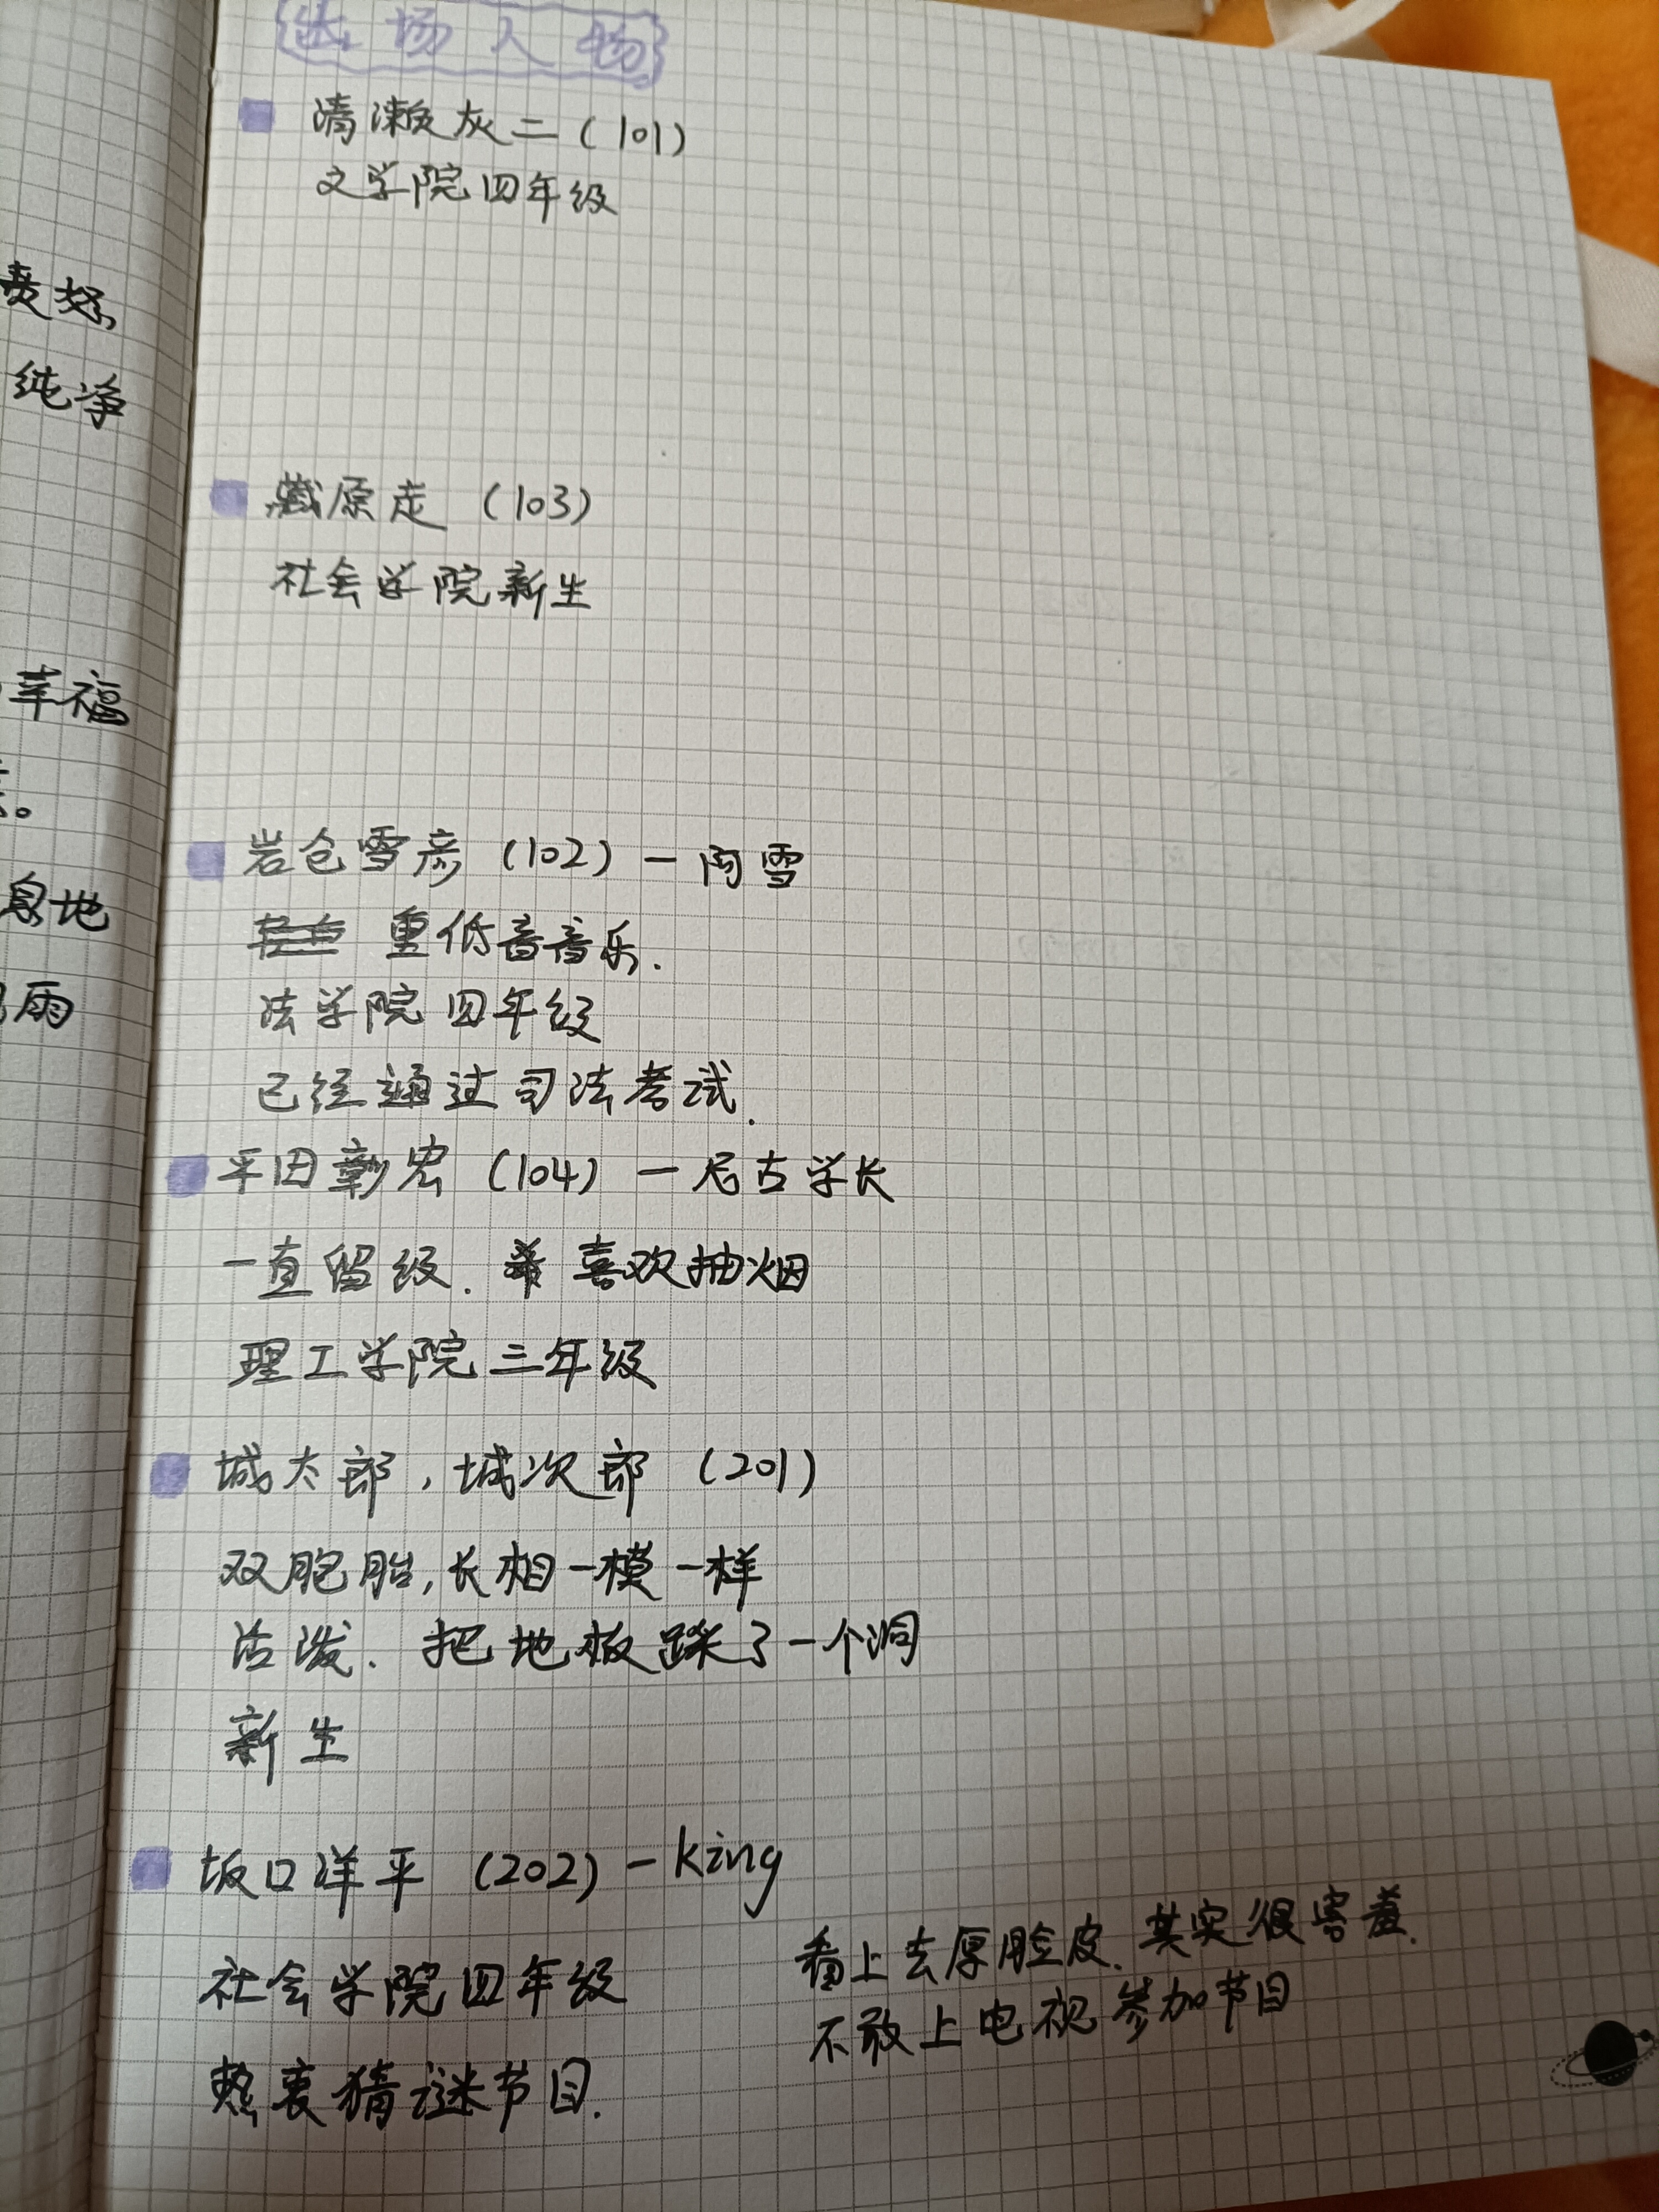 出场人物
清濑灰二(101)
文学院四年级
藏原走 (103)
社会学院新生
岩仓雪彦 (102) — 阿雪
重低音音乐.
法学院四年级
已经通过司法考试.
平田彰宏 (104) — 尼古学长
一直留级. 喜欢抽烟
理工学院三年级
城太郎, 城次郎 (201)
双胞胎, 长相一模一样
活泼. 把地板踩了一个洞
新生
坂口洋平 (202) — king
社会学院四年级
热衷猜谜节目.
看上去厚脸皮. 其实很害羞.
不敢上电视参加节目
纯净
幸福
息地
雨